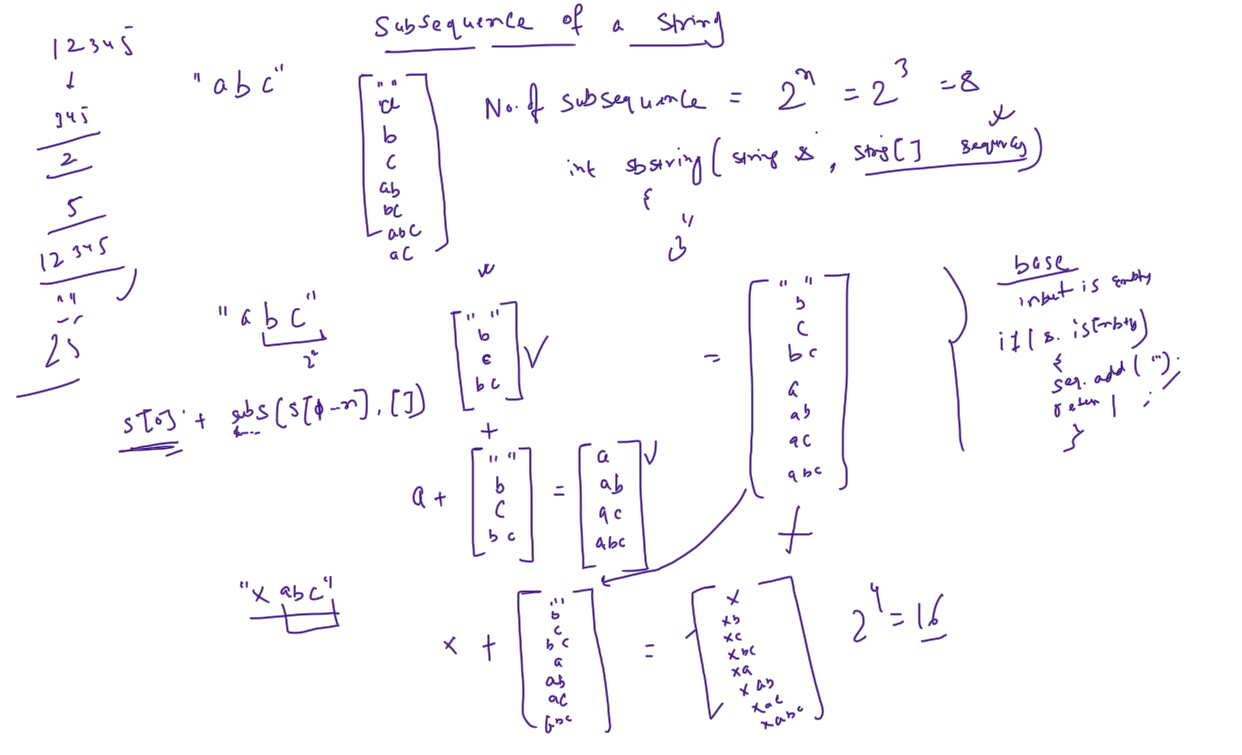 Subsequence of a string
12345
↓
345
2
5
12345
" "
25
"abc"
" "
a
b
c
ab
bc
abc
ac
No. of subsequence = 2^n = 2^3 = 8
int sbstring(string s, string[]
{
}
"abc"
2^2
s[0] + subs(s[1-n], [])
" "
b
c
bc
+
a +
" "
b
c
bc
=
a
ab
ac
abc
=
" "
b
c
bc
a
ab
ac
abc
+
base
input is empty
if(s.isEmpty)
{
seq.add("");
return 1;
}
"xabc"
x +
""
b
c
bc
a
ab
ac
abc
=
x
xb
xc
xbc
xa
xab
xac
xabc
2^4 = 16